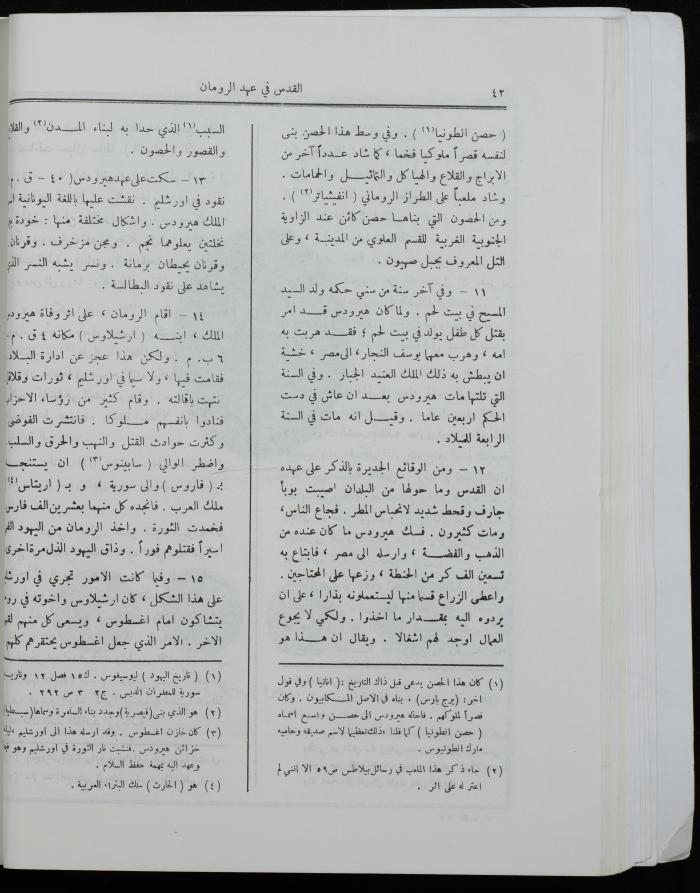 ٤٢
القدس في عهد الرومان
( حصن انطونيا(١) ) . وفي وسط هذا الحصن بنى
لنفسه قصراً ملوكيا فخما ، كما شاد عدداً آخر من
الابراج والقلاع والهياكل والتماثيل والحمامات .
وشاد ملعباً على الطراز الروماني ( انفيثياتر(٢) ) .
ومن الحصون التي بناها حصن كائن عند الزاوية
الجنوبية الغربية للقسم العلوي من المدينة ، وعلى
التل المعروف بجبل صهيون .
١١ – وفي آخر سنة من سني حكمه ولد السيد
المسيح في بيت لحم . ولما كان هيرودس قد امر
بقتل كل طفل يولد في بيت لحم ؛ فقد هربت به
امه ، وهرب معهما يوسف النجار، الى مصر ، خشية
ان يبطش به ذلك الملك العنيد الجبار . وفي السنة
التي تلتها مات هيرودس بعد ان عاش في دست
الحكم اربعين عاما . وقيل انه مات في السنة
الرابعة للميلاد .
١٢ – ومن الوقائع الجديرة بالذكر على عهده
ان القدس وما حولها من البلدان اصيبت بوبأ
جارف وقحط شديد لانحباس المطر . فجاع الناس،
ومات كثيرون . فسك هيرودس ما كان عنده من
الذهب والفضة ، وارسله الى مصر ، فابتاع به
تسعين الف كر من الحنطة ، وزعها على المحتاجين .
واعطى الزراع قسما منها ليستعملونه بذارا ، على ان
يردوه اليه بمقدار ما اخذوا . ولكي لا يجوع
العمال اوجد لهم اشغالا . ويقال ان هذا هو
(١) كان هذا الحصن يدعى قبل ذاك التاريخ : ( انانيا ) وفي قول
اخر: (برج بارس) . بناه في الاصل المكابيون . وكان
قصراً لملوكهم . فاحاله هيرودس الى حصن واسع اسماه
( حصن انطونيا ) كما قلنا ، ذلك تعظيما لاسم صديقه وحاميه
مارك انطونيوس .
(٢) جاء ذكر هذا الملعب في رسائل بيلاطس ص ٥٩ الا انني لم
اعثر له على اثر .
السبب(١) الذي حدا به لبناء المدن(٢) والقلا
والقصور والحصون .
١٣ – سكت على عهد هيرودس ( ٤٠ – ق . م
نقود في اورشليم . نقشت عليها باللغة اليونانية
الملك هيرودس . واشكال مختلفة منها : خودة
نخلتين يعلوهما نجم . ومجن مزخرف . وقرنان
وقرنان يحيطان برمانة . ونسر يشبه النسر الذي
يشاهد على نقود البطالسة .
١٤ – اقام الرومان ، على اثر وفاة هيرودس
الملك ، ابنه ( ارشيلاوس ) مكانه ٤ ق . م –
٦ ب . م . ولكن هذا عجز عن ادارة البلاد
فقامت فيها ، ولا سيما في اورشليم ، ثورات وقلاقل
نتهت باقالته . وقام كثير من رؤساء الاحزاب
فنادوا بانفسهم ملوكا . فانتشرت الفوضى
وكثرت حوادث القتل والنهب والحرق والسلب
واضطر الوالي ( سابينوس(٣) ) ان يستنجد
بـ ( فاروس ) والى سورية ، و بـ ( اريتاس(٤)
ملك العرب . فانجده كل منهما بعشرين الف فارس
فخمدت الثورة . واخذ الرومان من اليهود
اسيراً فقتلوهم فوراً . وذاق اليهود الذل مرة اخرى
١٥ – وفيما كانت الامور تجري في اورشليم
على هذا الشكل ، كان ارشيلاوس واخوته في روما
يتشاكون امام اغسطوس ، ويسعى كل منهم
الاخر . الامر الذي جعل اغسطوس يحتقرهم كلهم
(١) ( تاريخ اليهود ) ليوسيفوس . ك ١٥ فصل ١٢ وتاريخ
سورية للمطران الدبس . ج ٢ ٣ ص ٢٩٢ .
(٢) هو الذي بنى (قيصرية) وجدد بناء السامرة وسماها (سبسطية
(٣) كان خازن اغسطوس . وقد ارسله هذا الى اورشليم
خزائن هيرودس فنشبت نار الثورة في اورشليم وهو
وعهد اليه بمهمة حفظ السلام .
(٤) هو ( الحارث ) ملك البتراء العربية .